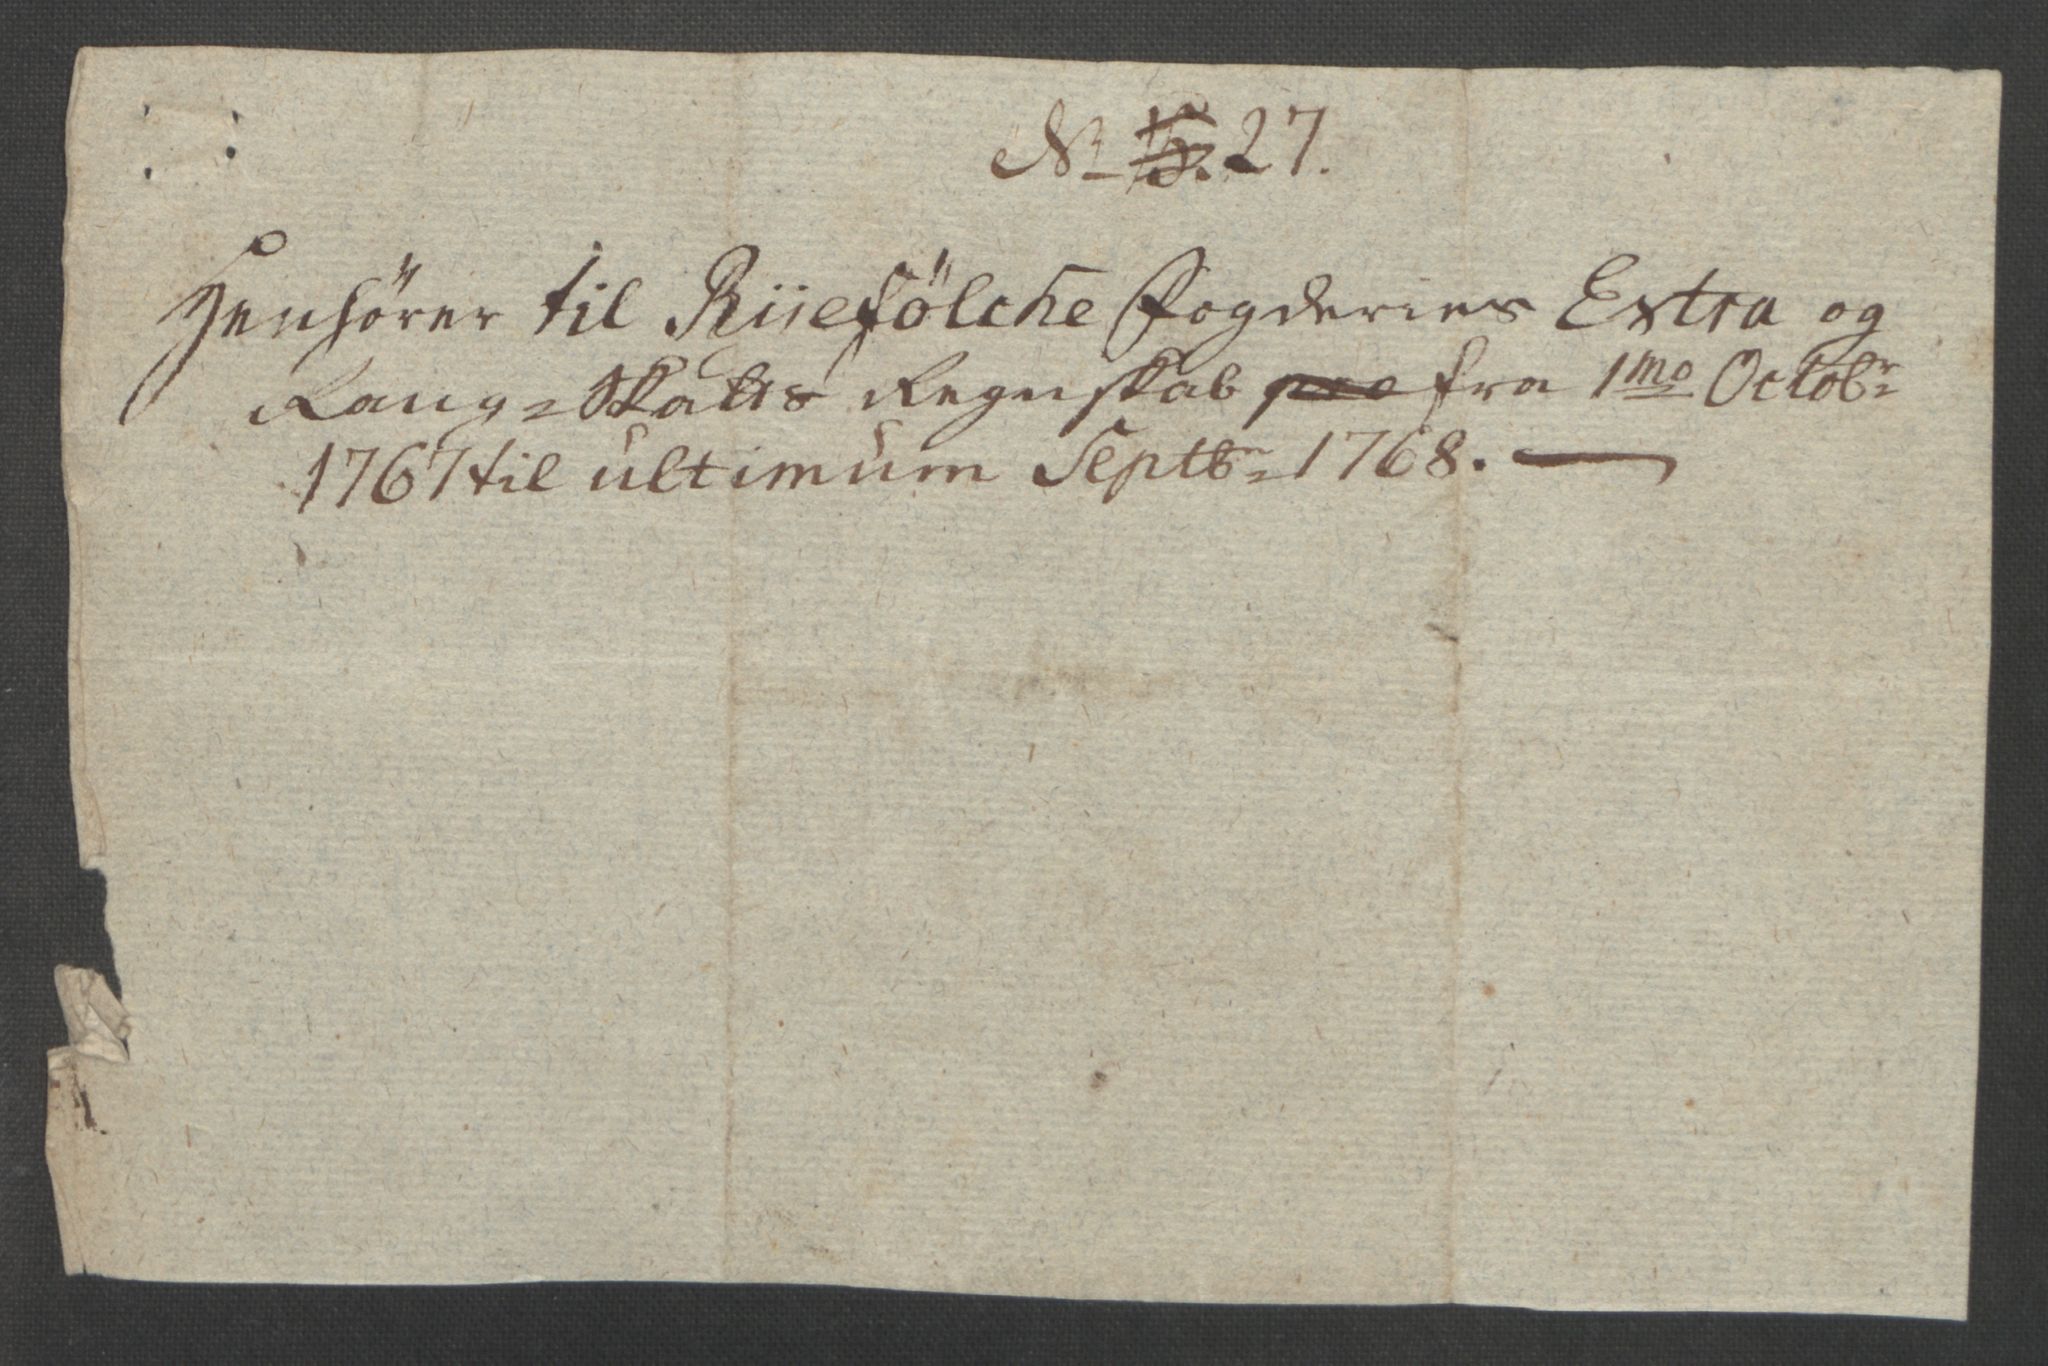 No 15. 27.
Henhörer til Riiefölche Fogderies Extra og
Rang-Skatts Regnskab pro fra 1mo Octobr
1767 til ultimum Septbr 1768.